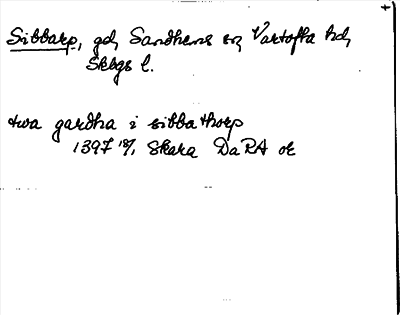 Sibbarp, gd, Sandhems sn, Vartofta hd,
Skbgs l.
twa gardha i sibbathorp
1397 18/1 Skara DaRA or